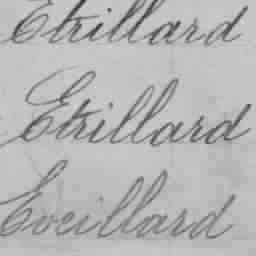 Etrillard
Etrillard
Eveillard